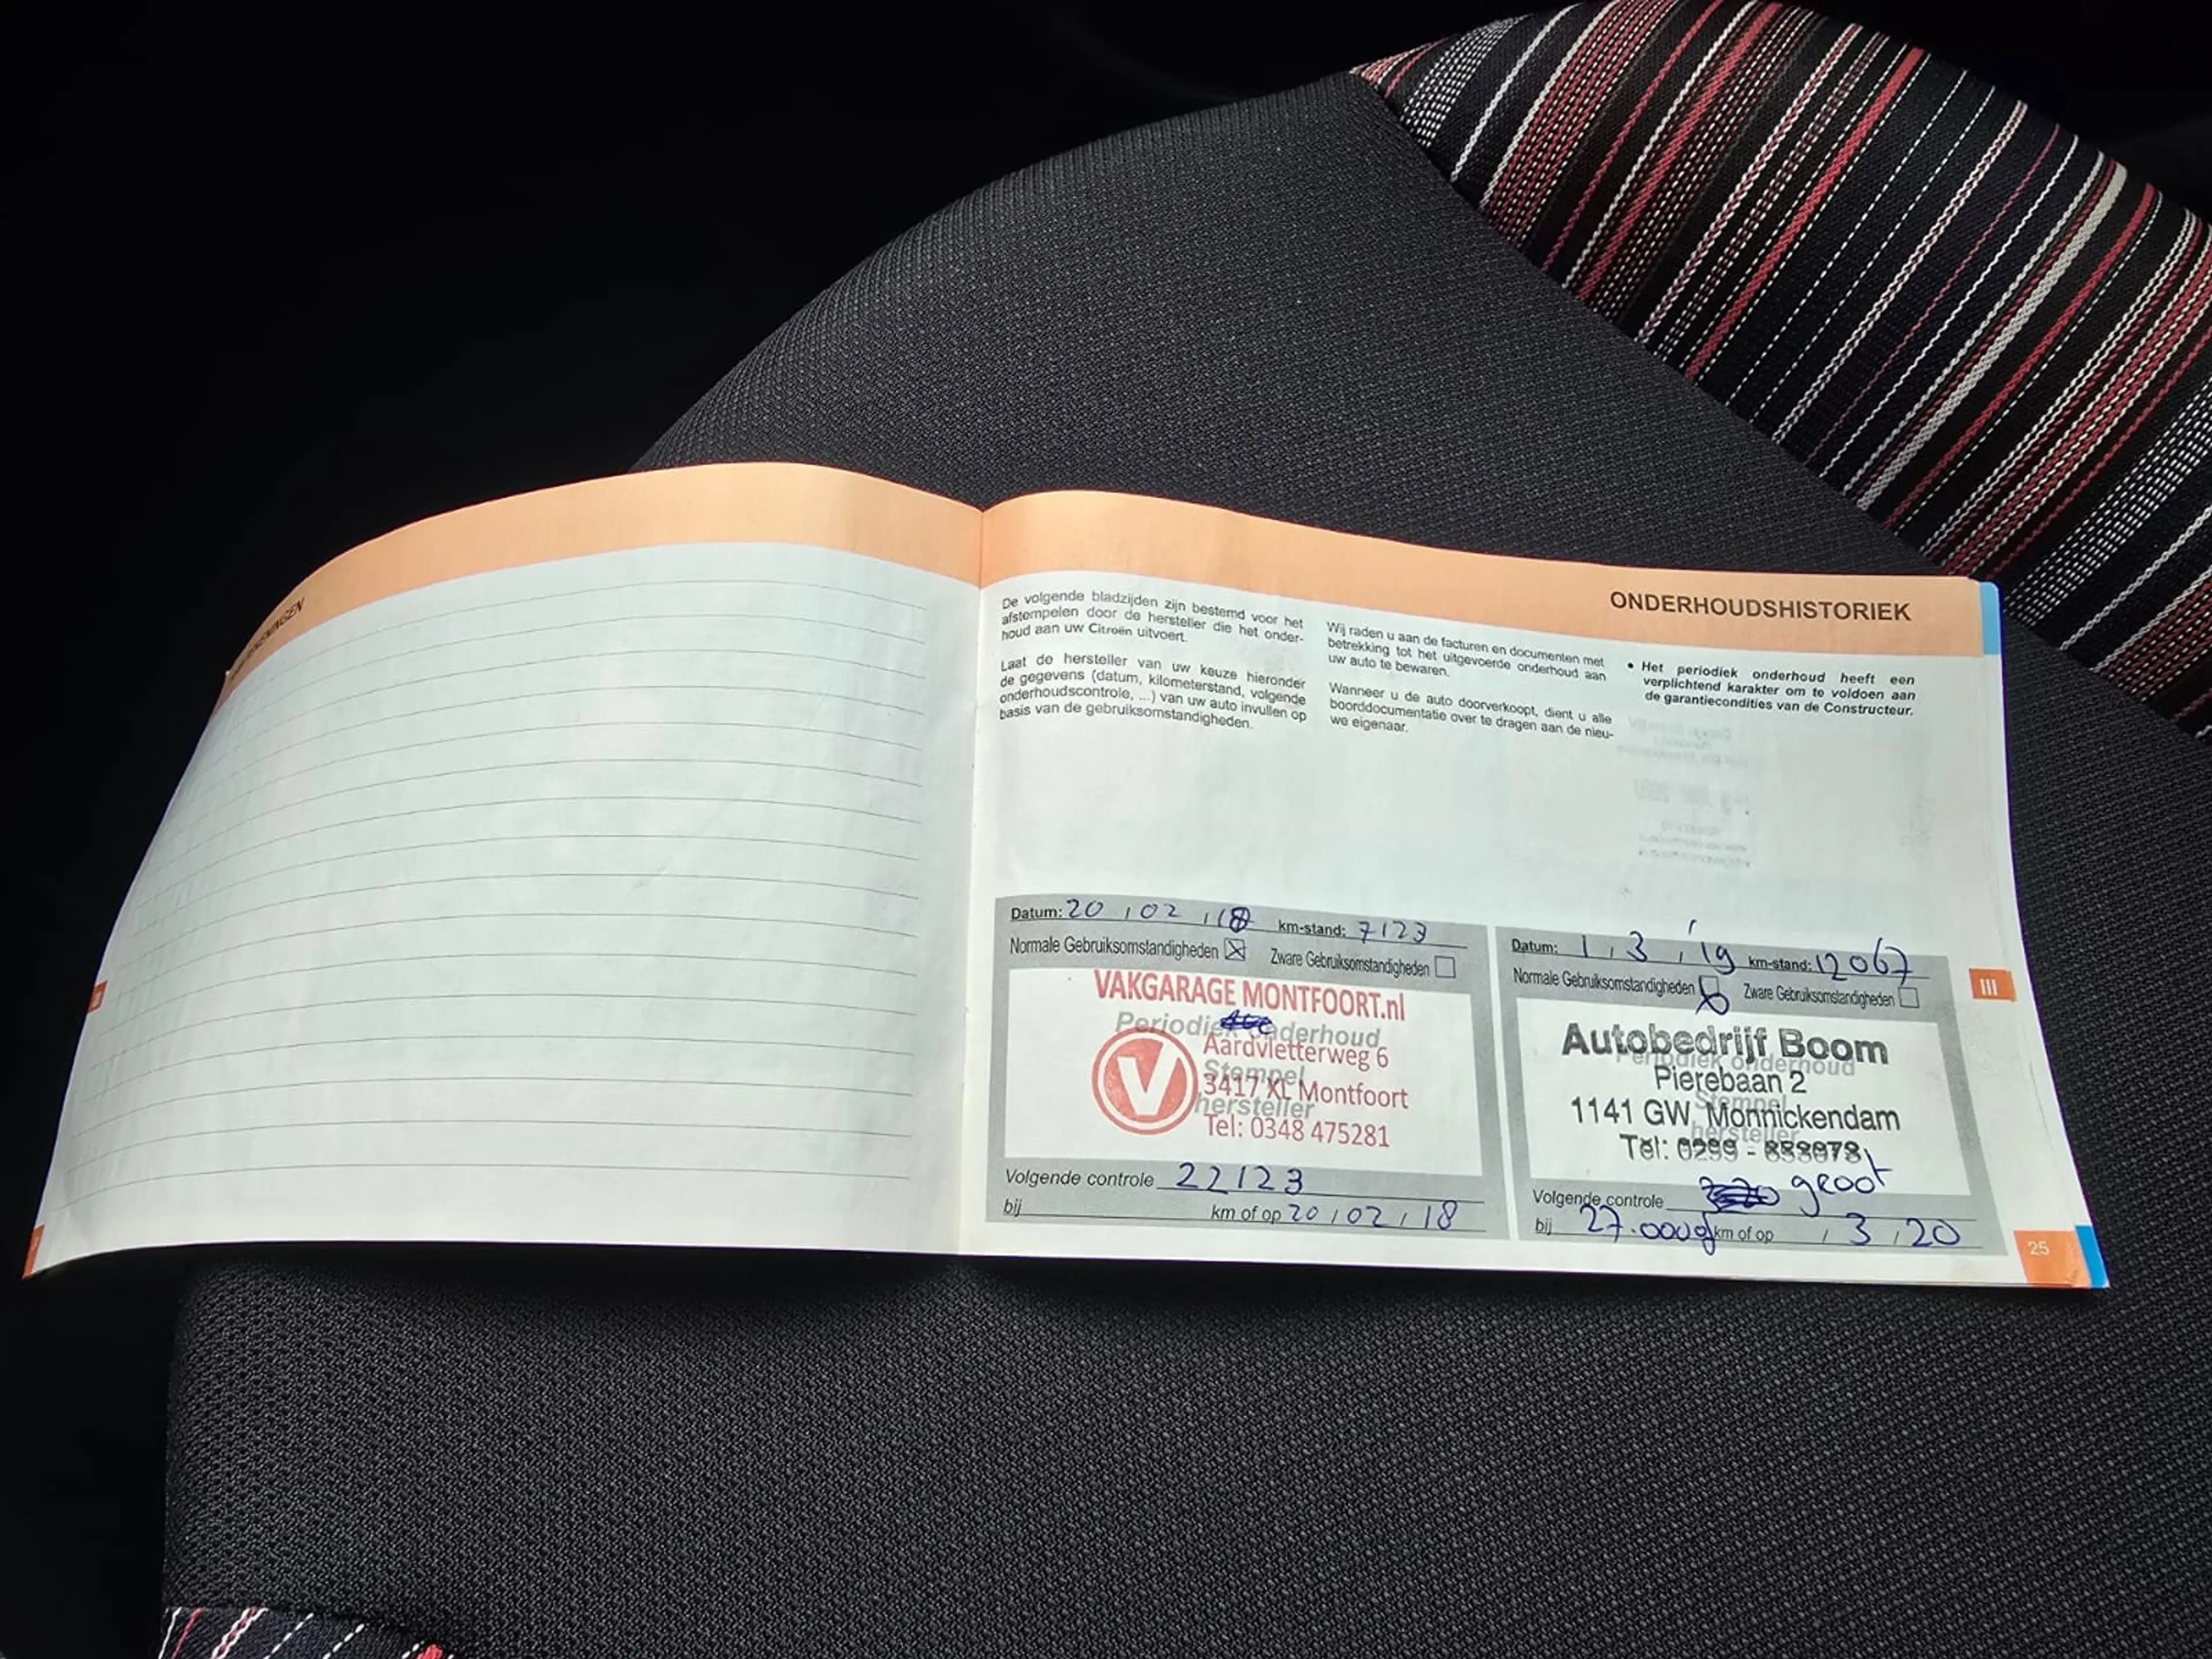 ONDERHOUDSHISTORIEK
De volgende bladzijden zijn bestemd voor het
afstempelen door de hersteller die het onder-
houd aan uw Citroën uitvoert.
Laat de hersteller van uw keuze hieronder
de gegevens (datum, kilometerstand, volgende
onderhoudscontrole, ...) van uw auto invullen op
basis van de gebruiksomstandigheden.
Wij raden u aan de facturen en documenten met
betrekking tot het uitgevoerde onderhoud aan
uw auto te bewaren.
Wanneer u de auto doorverkoopt, dient u alle
boorddocumentatie over te dragen aan de nieu-
we eigenaar.
• Het periodiek onderhoud heeft een
verplichtend karakter om te voldoen aan
de garantiecondities van de Constructeur.
Datum: 20 / 02 / 18 km-stand: 7123
Normale Gebruiksomstandigheden Zware Gebruiksomstandigheden
VAKGARAGE MONTFOORT.nl
Periodiek onderhoud
Aardvletterweg 6
Stempel
3417 XL Montfoort
hersteller
Tel: 0348 475281
Volgende controle 22123
bij km of op 20 / 02 / 18
Datum: 1 / 3 / '19 km-stand: 12067
Normale Gebruiksomstandigheden Zware Gebruiksomstandigheden
Autobedrijf Boom
Periodiek onderhoud
Pierebaan 2
Stempel
1141 GW Monnickendam
hersteller
Tel: 0299 -
Volgende controle groot
bij 27.000 km of op / 3 / 20
III
25